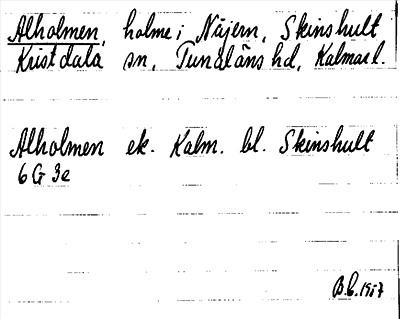 Alholmen, holme i Näjern, Skinshult
Kristdala sn, Tunaläns hd, Kalmar l.
Alholmen ek. Kalm. bl. Skinshult
6 G 3e
B.C. 1957